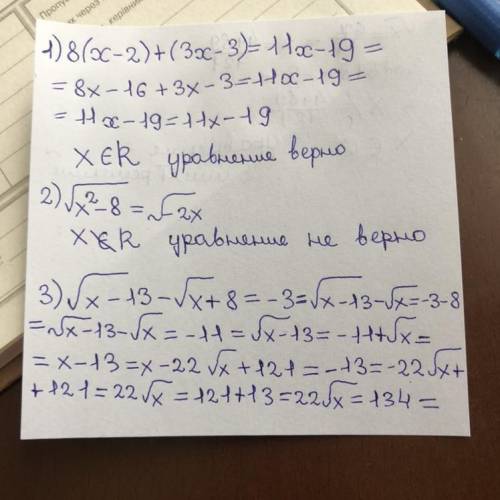 1) 8(x-2)+(3x-3)=11x-19=
=8x-16+3x-3=11x-19=
=11x-19=11x-19
x∈R уравнение верно
2) √x²-8=√-2x
x∉R уравнение не верно
3) √x-13-√x+8=-3=√x-13-√x=-3-8
=√x-13-√x=-11=√x-13=-11+√x=
=x-13=x-22√x+121=-13=-22√x+
+121=22√x=121+13=22√x=134=